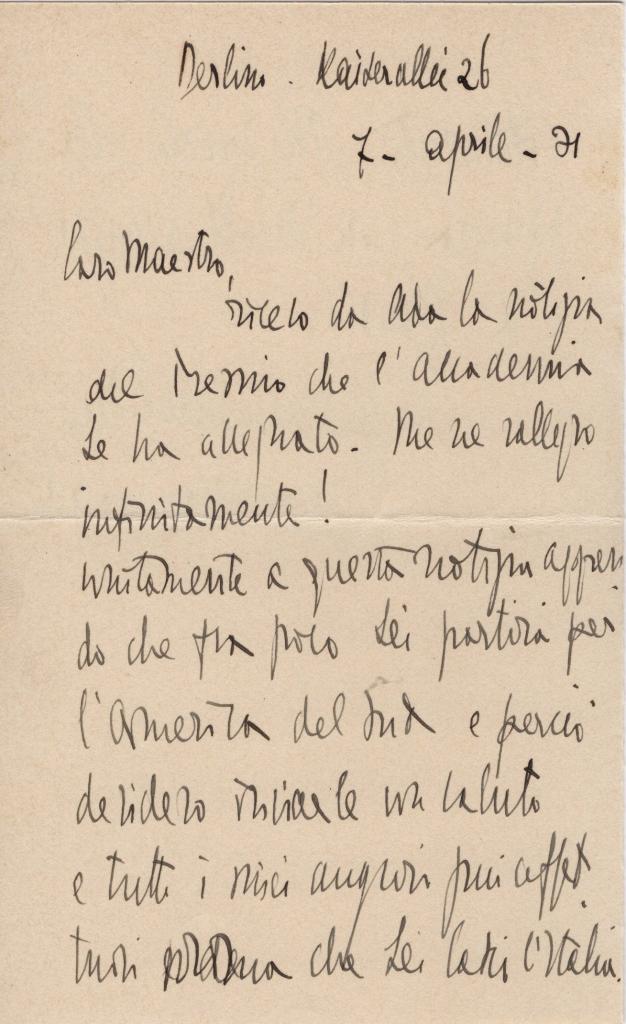 Berlino. Kaiserallée 26
7- aprile - 31
Caro Maestro,
ricevo da Ada la notizia
del Premio che l'Accademia
Le ha assegnato. Me ne rallegro
infinitamente!
unitamente a questa notizia appren
do che fra poco Lei partirà per
l'America del Sud e perciò
desidero inviarle un saluto
e tutti i miei auguri più affet
tuosi prima che Lei lasci l'Italia.